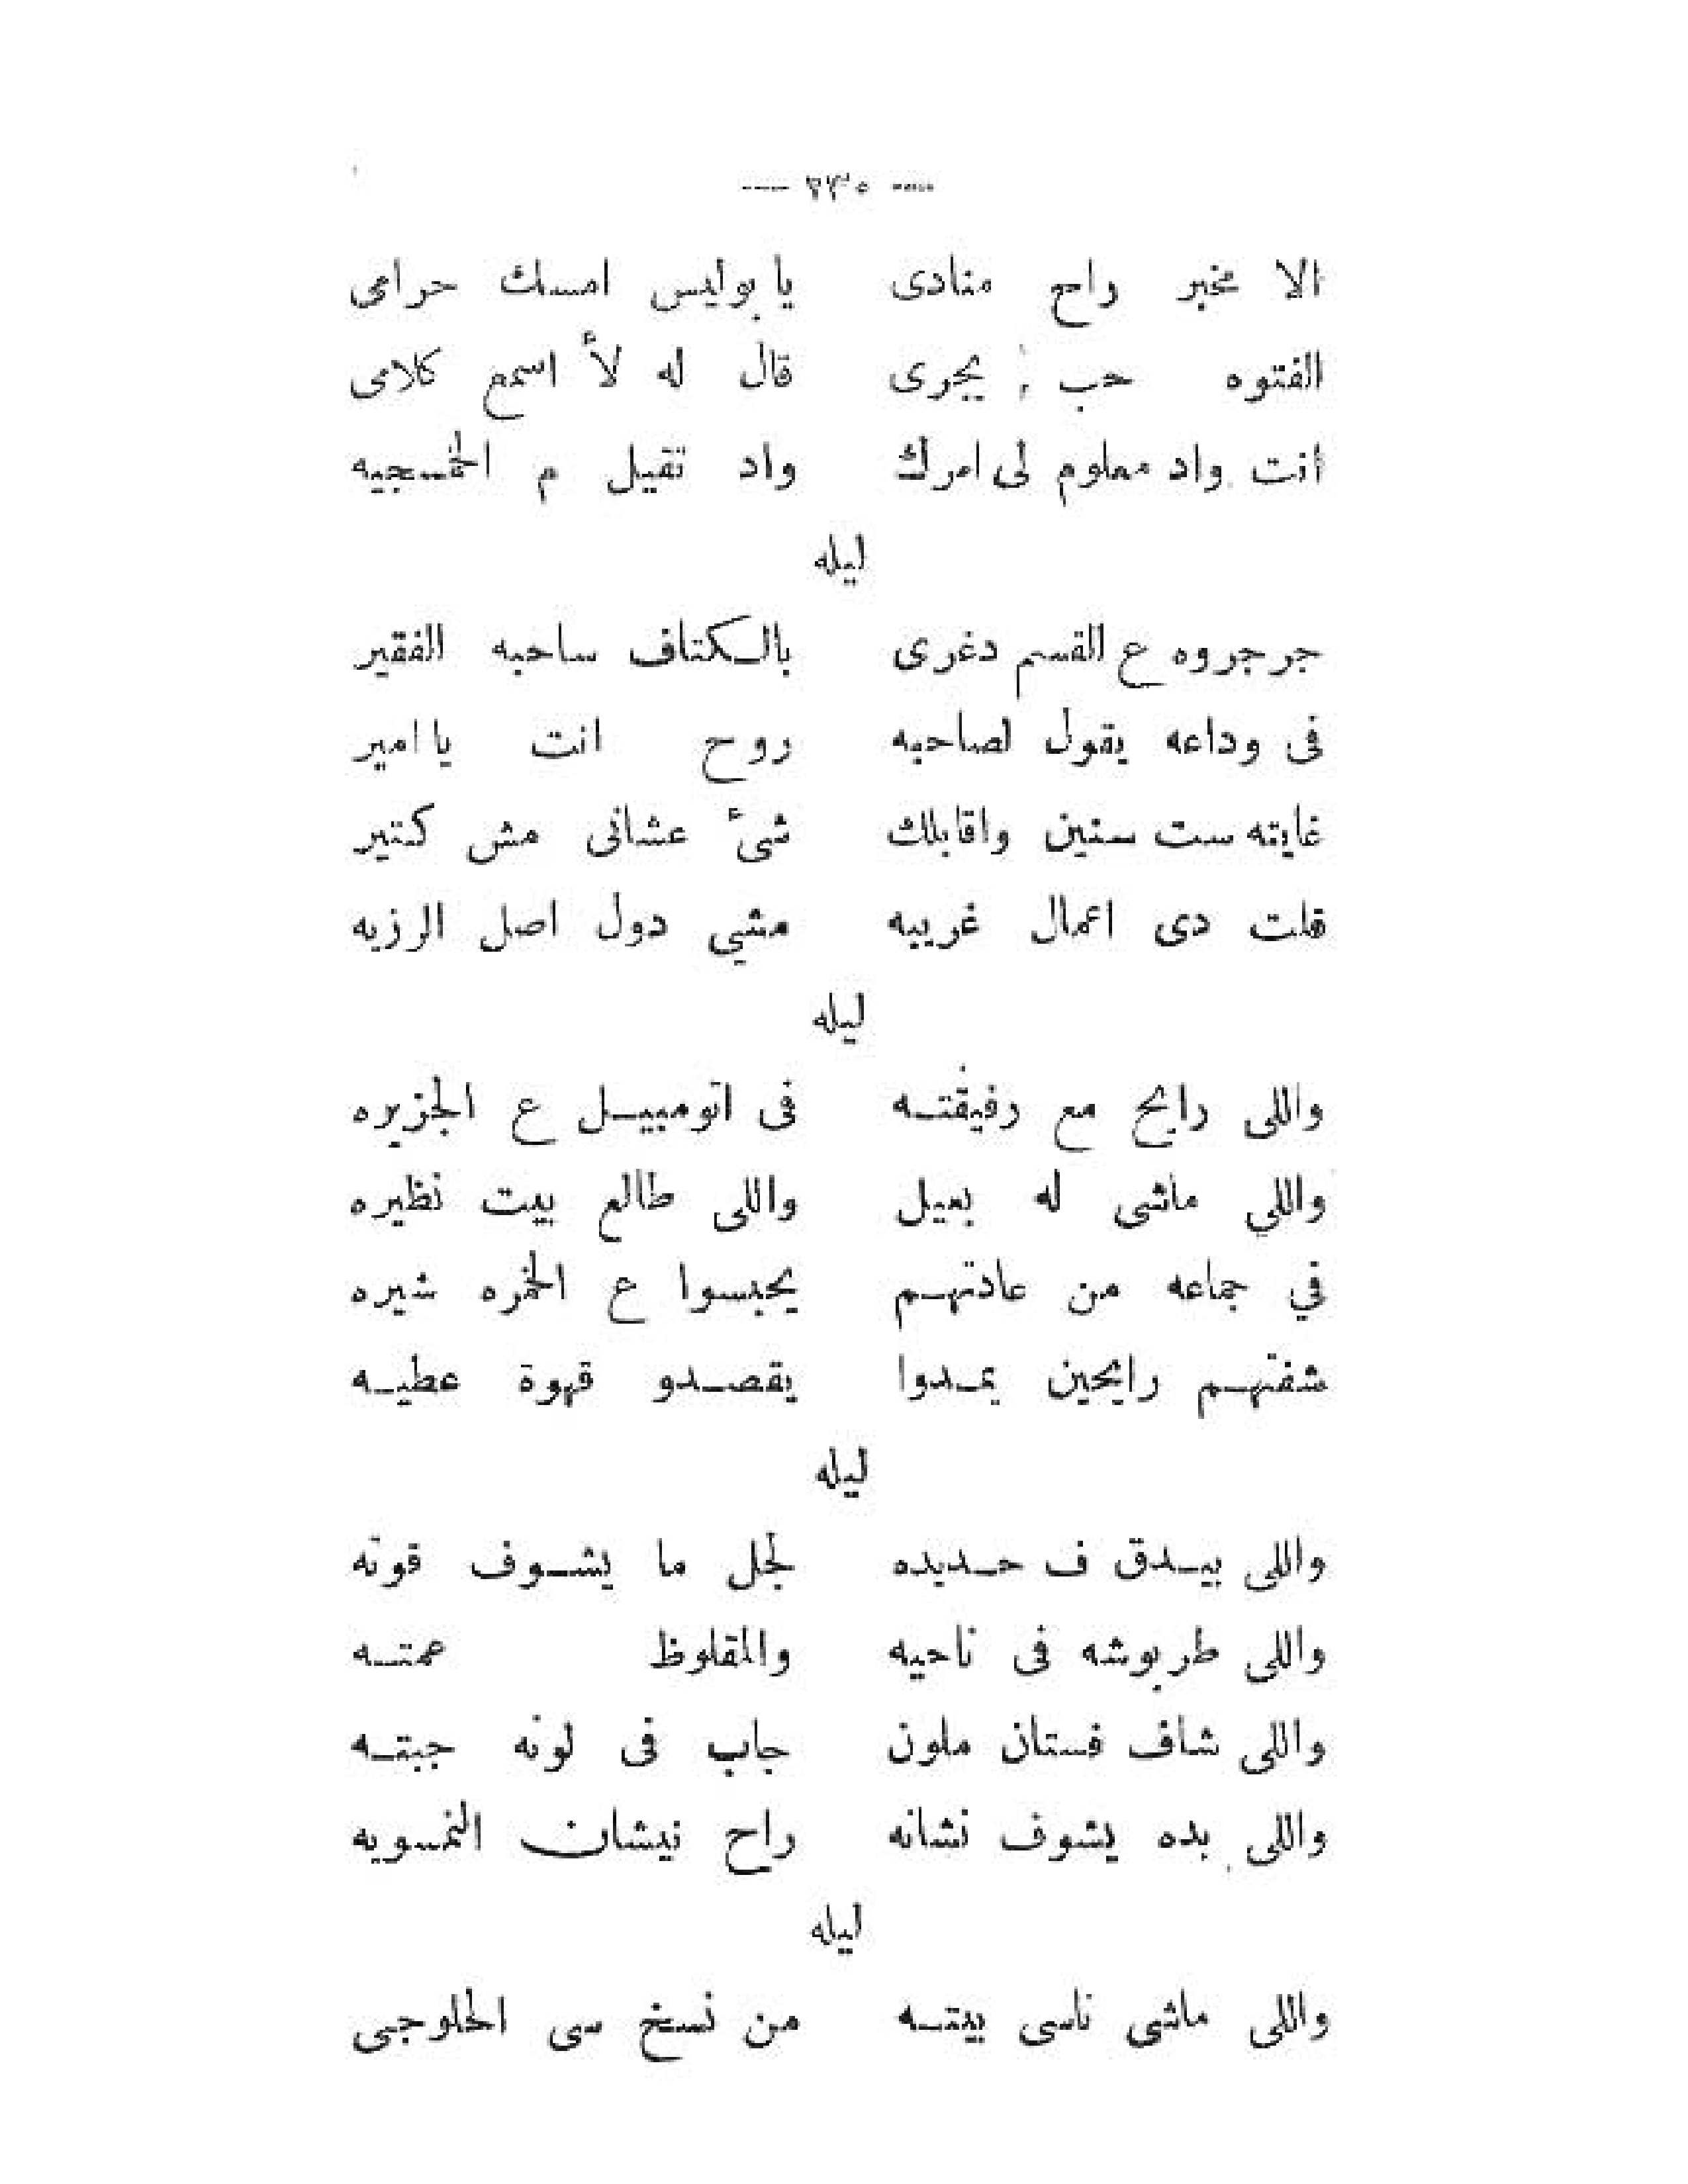 — ٢٣٥ —
الا مخبر راح منادى يا بوليس امسك حرامى
الفتوه حب يجرى قال له لأ اسمع كلامى
انت واد معلوم لى امرك واد تقيل م الخمسجيه
ليله
جرجروه ع القسم دغرى بالكتاف ساحبه الفقير
فى وداعه يقول لصاحبه روح انت يا امير
غايته ست سنين واقابلك شىء عشانى مش كتير
قلت دى اعمال غريبه مشي دول اصل الرزيه
ليله
واللى رايح مع رفيقته فى اتومبيل ع الجزيره
واللي ماشى له بعيل واللى طالع بيت نظيره
في جماعه من عادتهم يحبسوا ع الخمره شيره
شفتهم رايحين يمدوا يقصدو قهوة عطيه
ليله
واللى بيدق ف حديده لجل ما يشوف قوته
واللى طربوشه فى ناحيه والمقلوظ عمته
واللى شاف فستان ملون جاب فى لونه جبته
واللى بده يشوف نشانه راح نيشان النمسويه
ليله
واللى ماشى ناسى بيته من نسخ سى الحلوجى